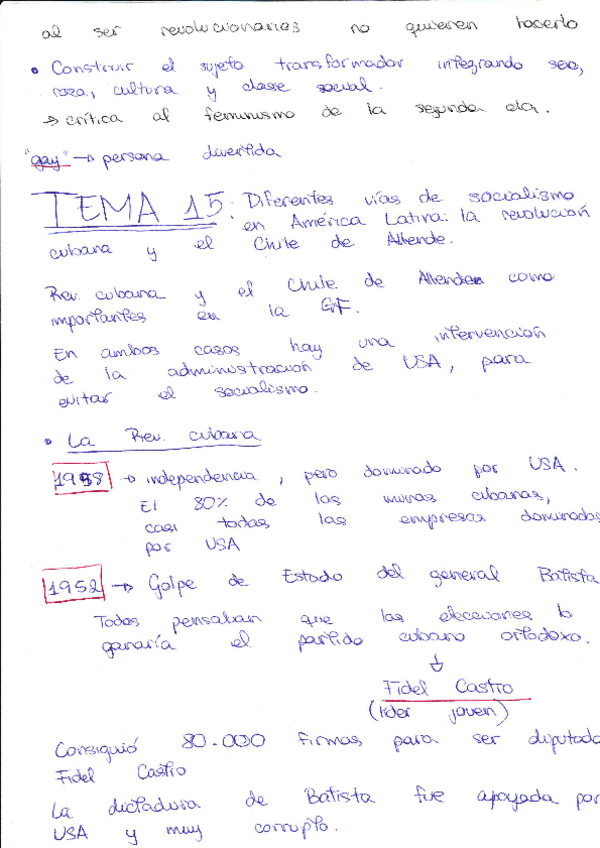 al ser revolucionarias no quieren hacerlo
• Construir el sujeto transformador integrando sexo,
raza, cultura y clase social.
→ crítica al feminismo de la segunda ola.
"gay" → persona divertida
TEMA 15: Diferentes vías de socialismo
en América Latina: la revolución
cubana y el Chile de Allende.
Rev. cubana y el Chile de Allende como
importantes en la GF.
En ambos casos hay una intervención
de la administración de USA, para
evitar el socialismo.
• La Rev. cubana
1958 → independencia, pero dominado por USA.
El 80% de las minas cubanas,
casi todas las empresas dominadas
por USA
1952 → Golpe de Estado del general Batista
Todos pensaban que las elecciones lo
ganaría el partido cubano ortodoxo.
↓
Fidel Castro
(líder joven)
Consiguió 80.000 firmas para ser diputado
Fidel Castro
La dictadura de Batista fue apoyada por
USA y muy corrupto.